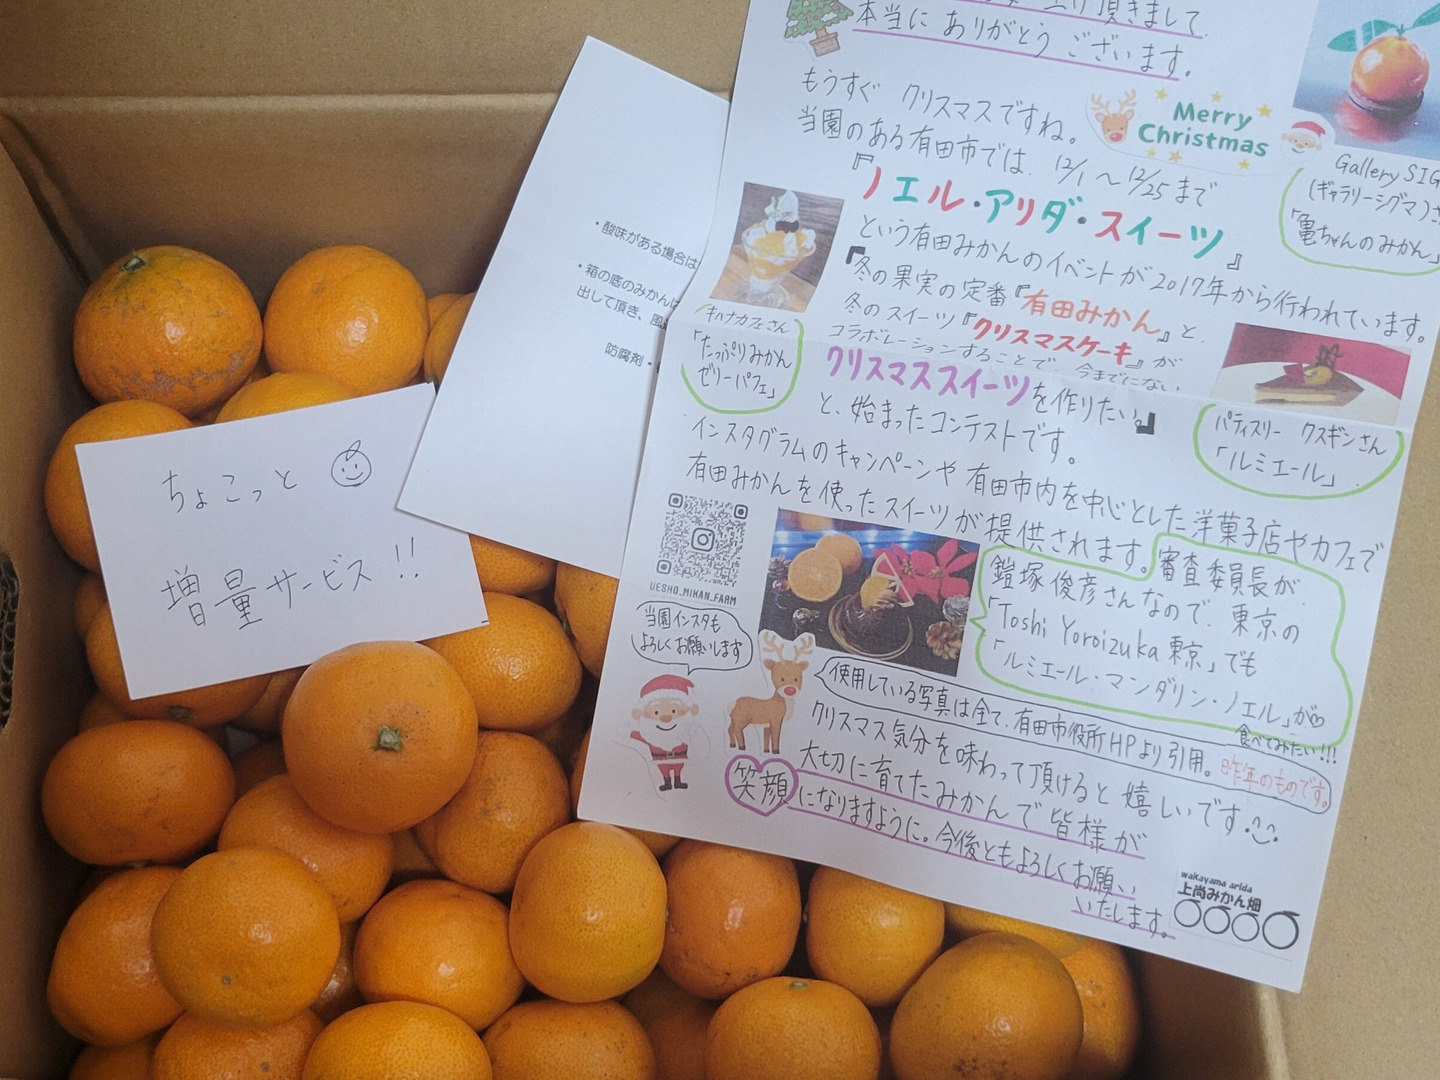 頂きまして
本当に ありがとう ございます。
もうすぐ クリスマスですね。
Merry
Christmas
当園のある有田市では、12/1～12/25まで
『ノエル・アリダ・スイーツ』
という有田みかんのイベントが2017年から行われています。
『冬の果実の定番『有田みかん』と、
冬のスイーツ『クリスマスケーキ』が
コラボレーションすることで、今までにない
クリスマススイーツを作りたい。』
と、始まったコンテストです。
インスタグラムのキャンペーンや有田市内を中心とした洋菓子店やカフェで
有田みかんを使ったスイーツが提供されます。
審査委員長が
鎧塚俊彦さんなので、東京の
「Toshi Yoroizuka東京」でも
「ルミエール・マンダリン・ノエル」が
食べてみたい!!!
Gallery SIG
(ギャラリーシグマ)さ
「亀ちゃんのみかん」
キハナカフェさん
「たっぷりみかん
ゼリーパフェ」
パティスリー クスギンさん
「ルミエール」
UESHO_MIKAN_FARM
当園インスタも
よろしくお願いします
使用している写真は全て、有田市役所HPより引用。昨年のものです。
クリスマス気分を味わって頂けると嬉しいです。
大切に育てたみかんで皆様が
笑顔になりますように。今後ともよろしくお願い
いたします。
wakayama arida
上尚みかん畑
・酸味がある場合は
・箱の底のみかんは
出して頂き、風
防腐剤・
ちょこっと
増量サービス!!